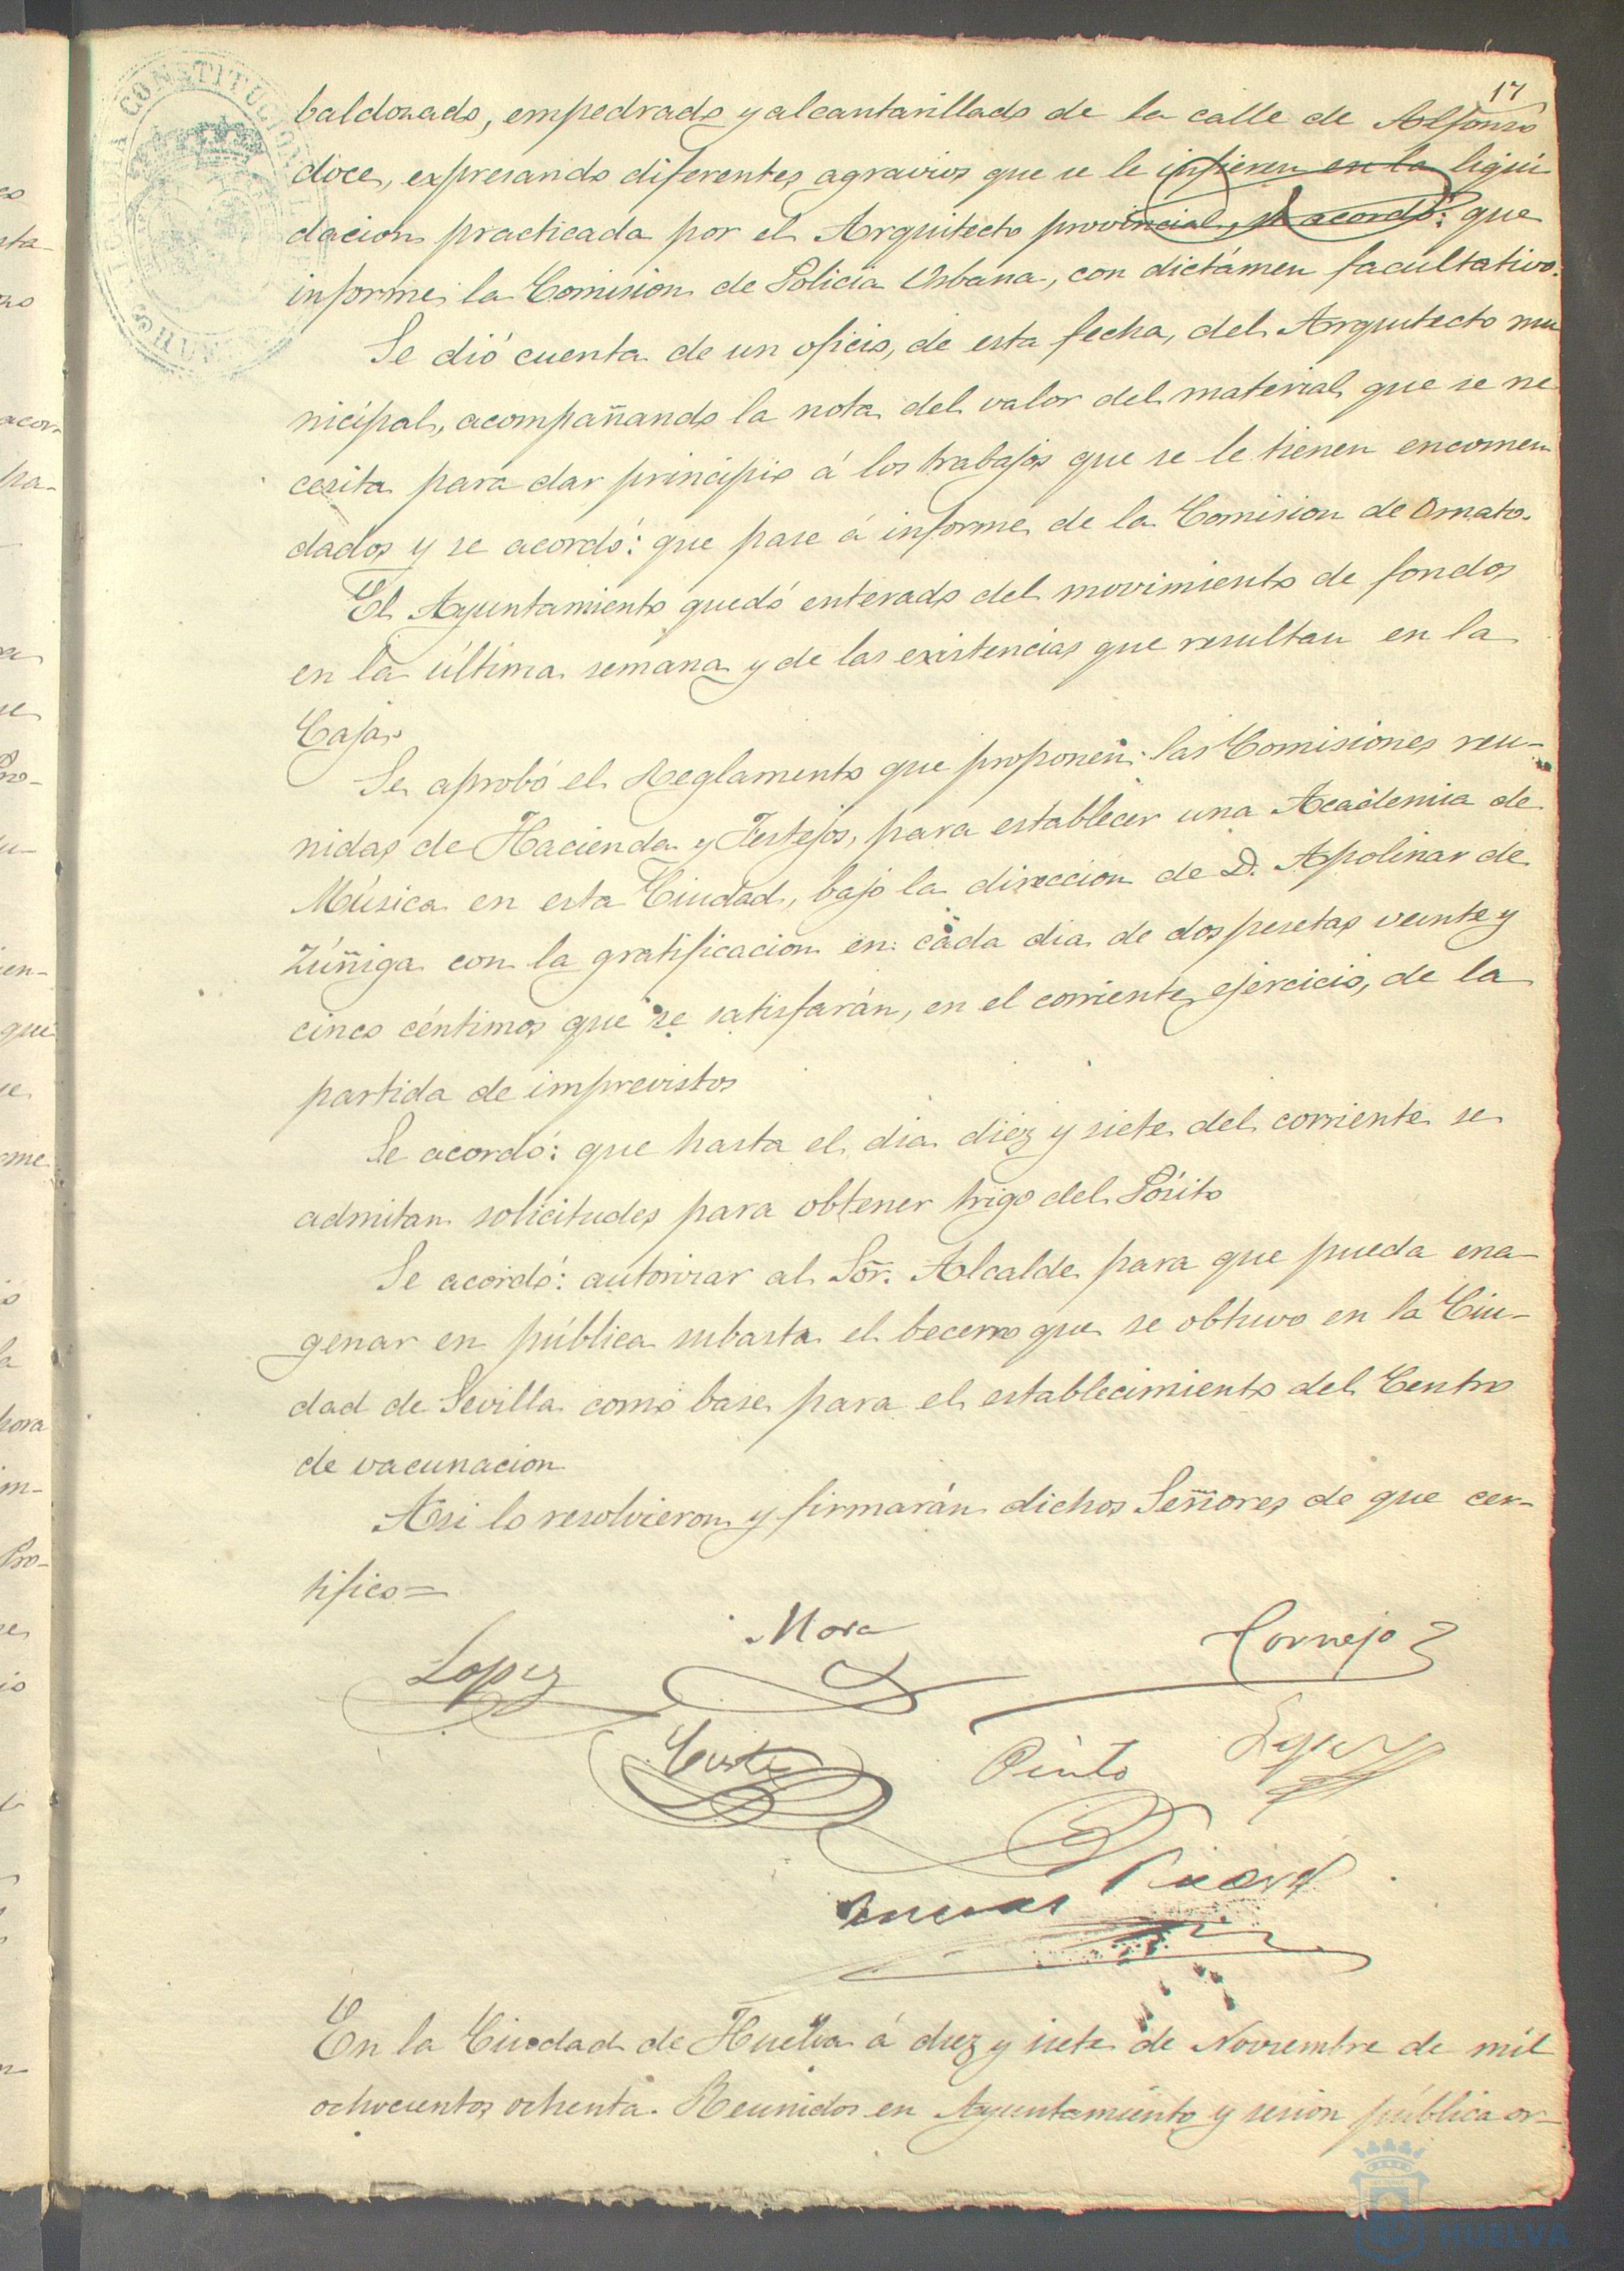 17
baldosado, empedrado y alcantarillado de la calle de Alfonso
doce, expresando diferentes agravios que se le infieren en la liqui
dacion practicada por el Arquitecto provincial, se acordó: que
informe la Comision de Policia Urbana, con dictámen facultativo.
Se dió cuenta de un oficio, de esta fecha, del Arquitecto mu
nicipal, acompañando la nota del valor del material que se ne
cesita para dar principio á los trabajos que se le tienen encomen
dados y se acordó: que pase á informe de la Comision de Ornato.
El Ayuntamiento quedó enterado del movimiento de fondos
en la última semana y de las existencias que resultan en la
Caja
Se aprobó el Reglamento que proponen las Comisiones reu-
nidas de Hacienda y Festejos, para establecer una Academia de
Música en esta Ciudad, bajo la direccion de D. Apolinar de
Zúñiga con la gratificacion en cada dia de dos pesetas veinte y
cinco céntimos que se satisfarán, en el corriente ejercicio, de la
partida de imprevistos
Se acordó: que hasta el dia diez y siete del corriente se
admitan solicitudes para obtener trigo del Pósito
Se acordó: autorizar al Sor. Alcalde para que pueda ena-
genar en pública subasta el becerro que se obtuvo en la Ciu-
dad de Sevilla como base para el establecimiento del Centro
de vacunacion
Asi lo resolvieron y firmarán dichos Señores de que cer-
tifico=
Mora Cornejo
Lopez
Pinto Lopez
En la Ciudad de Huelva á diez y siete de Noviembre de mil
ochocientos ochenta. Reunidos en Ayuntamiento y sesion pública or-
HUELVA